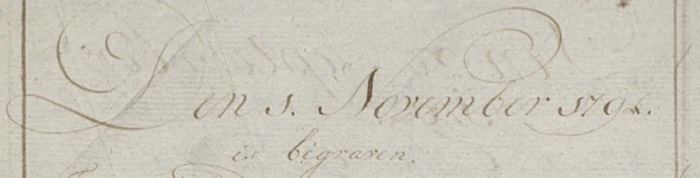 Den 1. November 1794.
is bigraven.